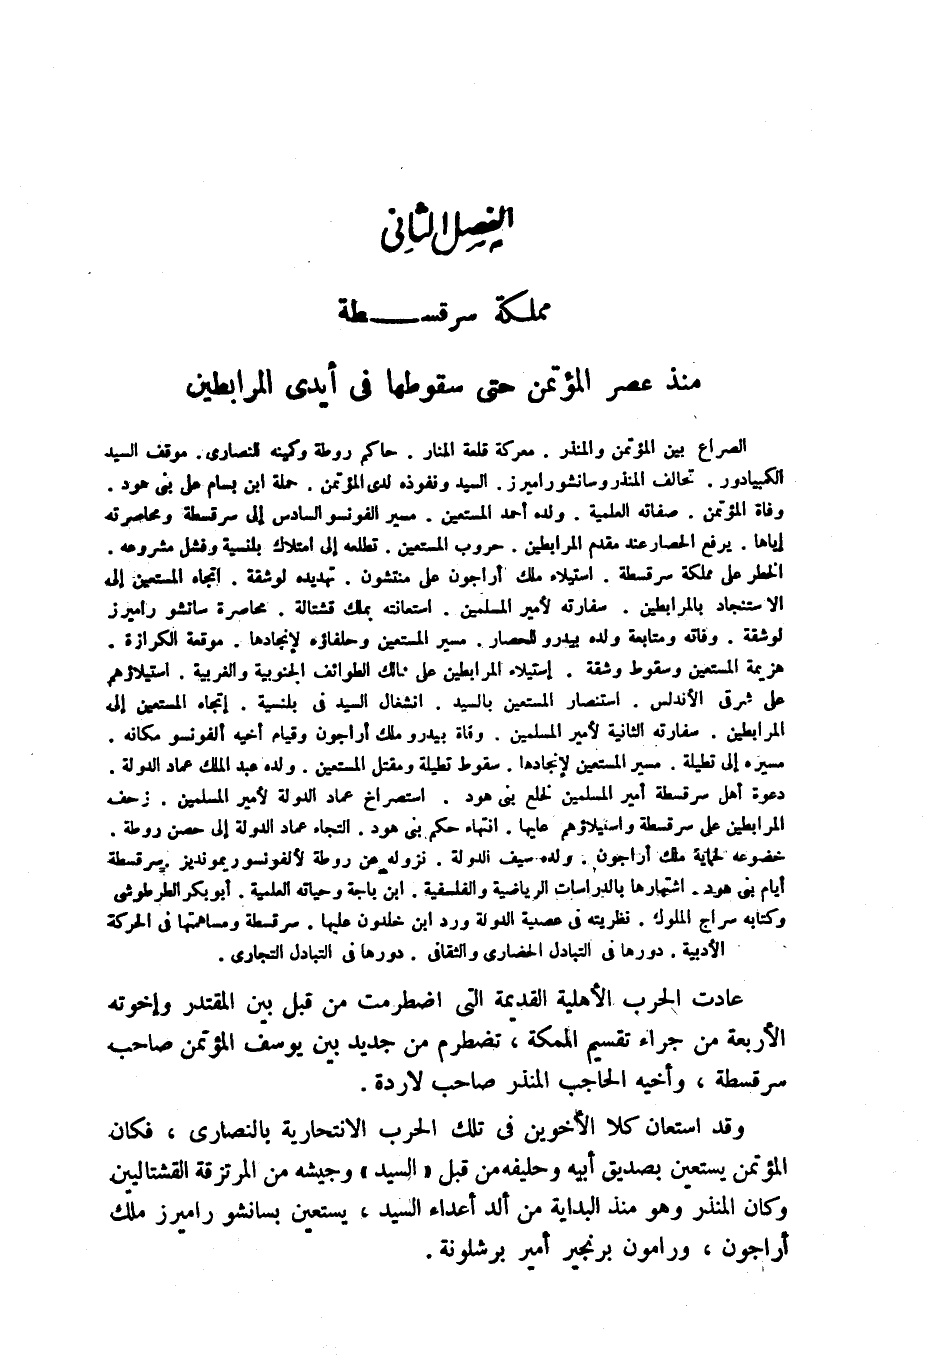 الفصل الثانى
مملكة سرقسطة
منذ عصر المؤتمن حتى سقوطها فى أيدى المرابطين
الصراع بين المؤتمن والمنذر . معركة قلعة المنار . حاكم روطة وكمينه للنصارى . موقف السيد
الكمبيادور . تحالف المنذر وسانشو راميرز . السيد ونفوذه لدى المؤتمن . حملة ابن بسام على بنى هود .
وفاة المؤتمن . صفاته العلمية . ولده أحمد المستعين . مسير الفونسو السادس إلى سرقسطة ومحاصرته
إياها . يرفع الحصار عند مقدم المرابطين . حروب المستعين . تطلعه إلى امتلاك بلنسية وفشل مشروعه .
الخطر على مملكة سرقسطة . استيلاء ملك أراجون على منتشون . تهديده لوشقة . اتجاه المستعين إلى
الاستنجاد بالمرابطين . سفارته لأمير المسلمين . استعانته بملك قشتالة . محاصرة سانشو راميرز
لوشقة . وفاته ومتابعة ولده بيدرو للحصار . مسير المستعين وحلفاؤه لإنجادها . موقعة الكرازة .
هزيمة المستعين وسقوط وشقة . إستيلاء المرابطين على ممالك الطوائف الجنوبية والغربية . استيلاؤهم
على شرق الأندلس . استنصار المستعين بالسيد . انشغال السيد فى بلنسية . إتجاه المستعين إلى
المرابطين . سفارته الثانية لأمير المسلمين . وفاة بيدرو ملك أراجون وقيام أخيه ألفونسو مكانه .
مسيره إلى تطيلة . مسير المستعين لإنجادها . سقوط تطيلة ومقتل المستعين . ولده عبد الملك عماد الدولة .
دعوة أهل سرقسطة أمير المسلمين لخلع بنى هود . استصراخ عماد الدولة لأمير المسلمين . زحف
المرابطين على سرقسطة واستيلاؤهم عليها . انتهاء حكم بنى هود . التجاء عماد الدولة إلى حصن روطة .
خضوعه لحماية ملك أراجون . ولده سيف الدولة . نزوله عن روطة لألفونسو ريمونديز . سرقسطة
أيام بنى هود . اشتهارها بالدراسات الرياضية والفلسفية . ابن باجة وحياته العلمية . أبو بكر الطرطوشى
وكتابه سراج الملوك . نظريته فى عصبية الدولة ورد ابن خلدون عليها . سرقسطة ومساهمتها فى الحركة
الأدبية . دورها فى التبادل الحضارى والثقافى . دورها فى التبادل التجارى .
عادت الحرب الأهلية القديمة التى اضطرمت من قبل بين المقتدر وإخوته
الأربعة من جراء تقسيم المملكة ، تضطرم من جديد بين يوسف المؤتمن صاحب
سرقسطة ، وأخيه الحاجب المنذر صاحب لاردة .
وقد استعان كلا الأخوين فى تلك الحرب الانتحارية بالنصارى ، فكان
المؤتمن يستعين بصديق أبيه وحليفه من قبل « السيد » وجيشه من المرتزقة القشتاليين
وكان المنذر وهو منذ البداية من ألد أعداء السيد ، يستعين بسانشو راميرز ملك
أراجون ، ورامون برنجير أمير برشلونة .